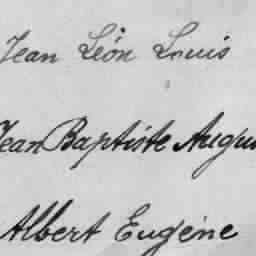 Jean Léon Louis
Jean Baptiste Augu
Albert Eugène